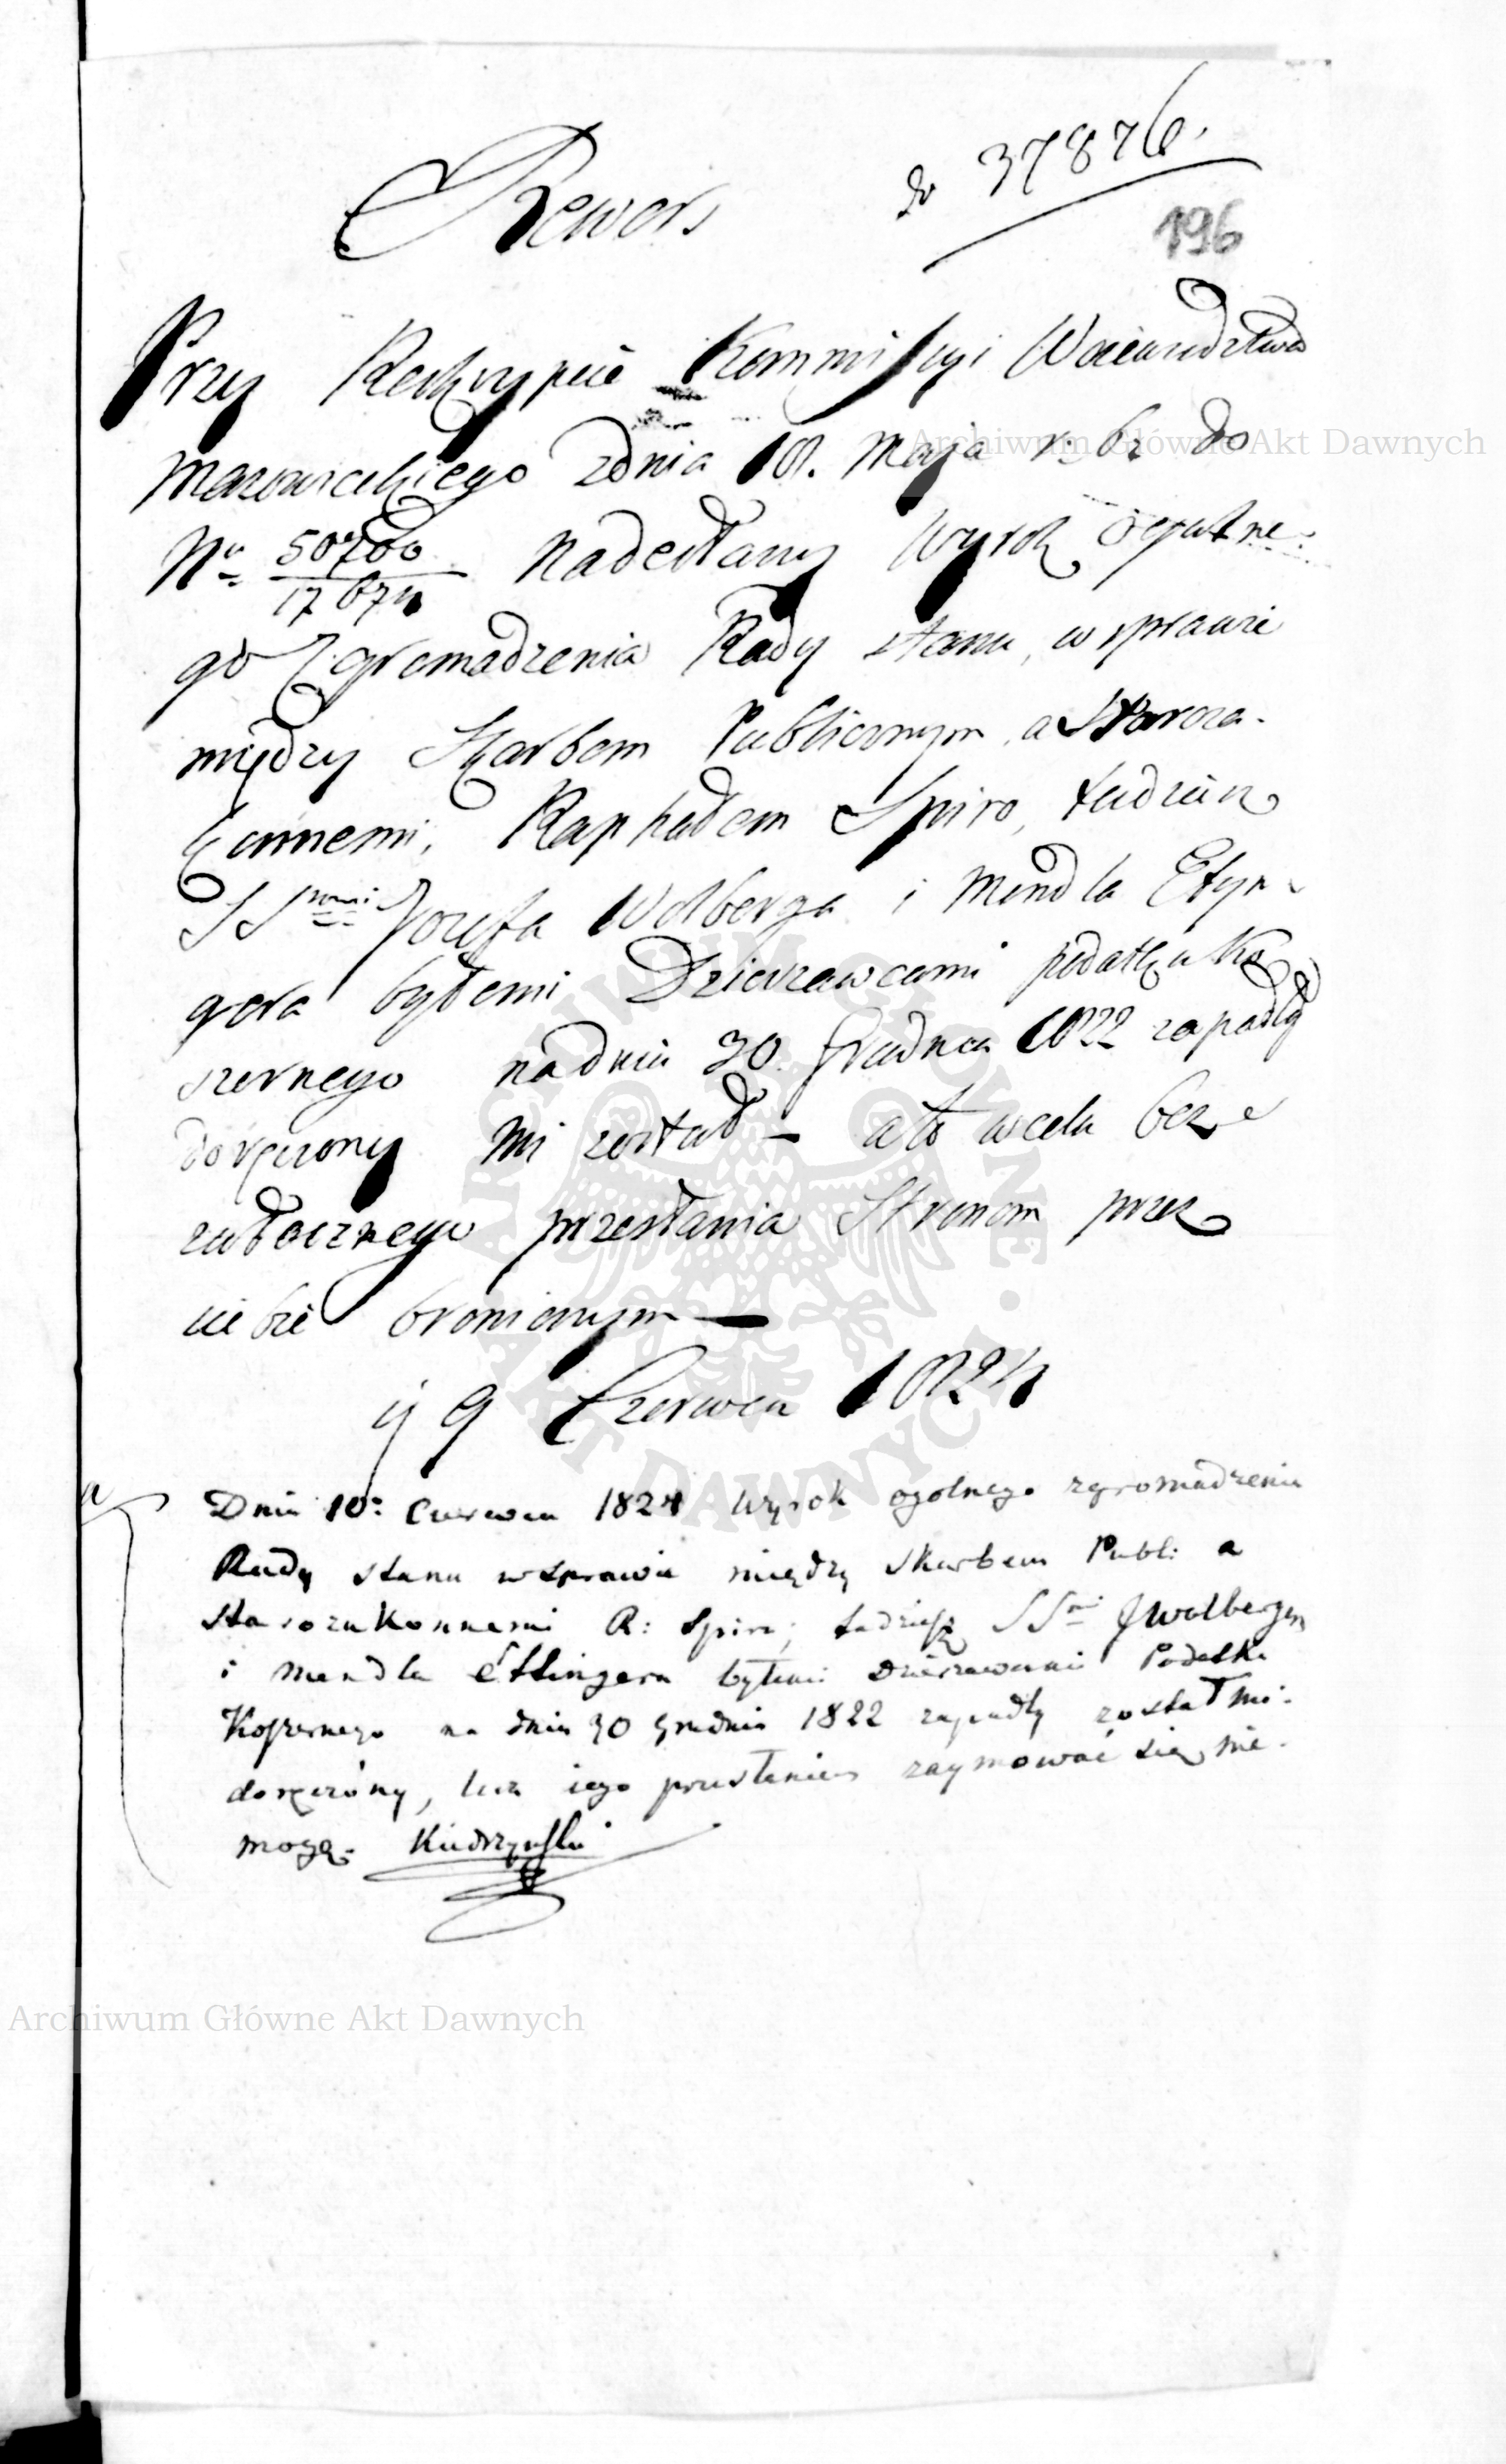 do 37876.
Rewers
196
Przy Reskrypcie Kommissyi Woiewodztwa
Mazowieckiego zdnia 18. Maja r: b: do
No 50700/17674 nadesłany Wyrok Ogolne-
go Zgromadzenia Rady Stanu, w sprawie
między Skarbem Publicznym, a Staroza-
konnemi, Raphałem Spiro, tudziesz
SSrami Jozefa Wolberga i Mendla Etyn-
gera byłemi Dzierzawcami podatku Ko-
szernego na dniu 30. Grudnia 1822 zapadły
doręczony mi został – a to w celu bez-
zwłocznego przesłania Stronom przez
siebie bronionym —
ij 9 Czerwca 1824
Dnia 10: Czerwca 1824 Wyrok ogolnego zgromadzenia
Rady stanu w sprawie między Skarbem Publ: a
Starozakonnemi R: Spiro; tudziesz SSmi J Wolbergera
i Mendla Ettingera byłemi Dzierzawcami Podatku
Koszernego na dniu 30 Grudnia 1822 zapadły został mi
doręczóny, lecz iego przesłaniem zaymować się nie
mogę. Kiedrzyński
Archiwum Główne Akt Dawnych
Archiwum Główne Akt Dawnych
ARCHIWUM GŁÓWNE AKT DAWNYCH